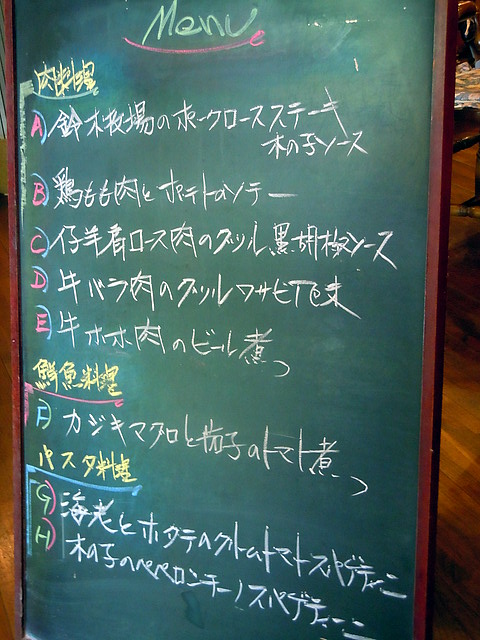 Menu
肉料理
A) 鈴木牧場のポークロースステーキ
木の子ソース
B) 鶏もも肉とポテトのソテー
C) 仔羊肩ロース肉のグリル黒胡椒ソース
D) 牛バラ肉のグリルワサビ風味
E) 牛ホホ肉のビール煮
鮮魚料理
F) カジキマグロと茄子のトマト煮
パスタ料理
G) 海老とホタテのクリームトマトスパゲティーニ
H) 木の子のペペロンチーノスパゲティーニ